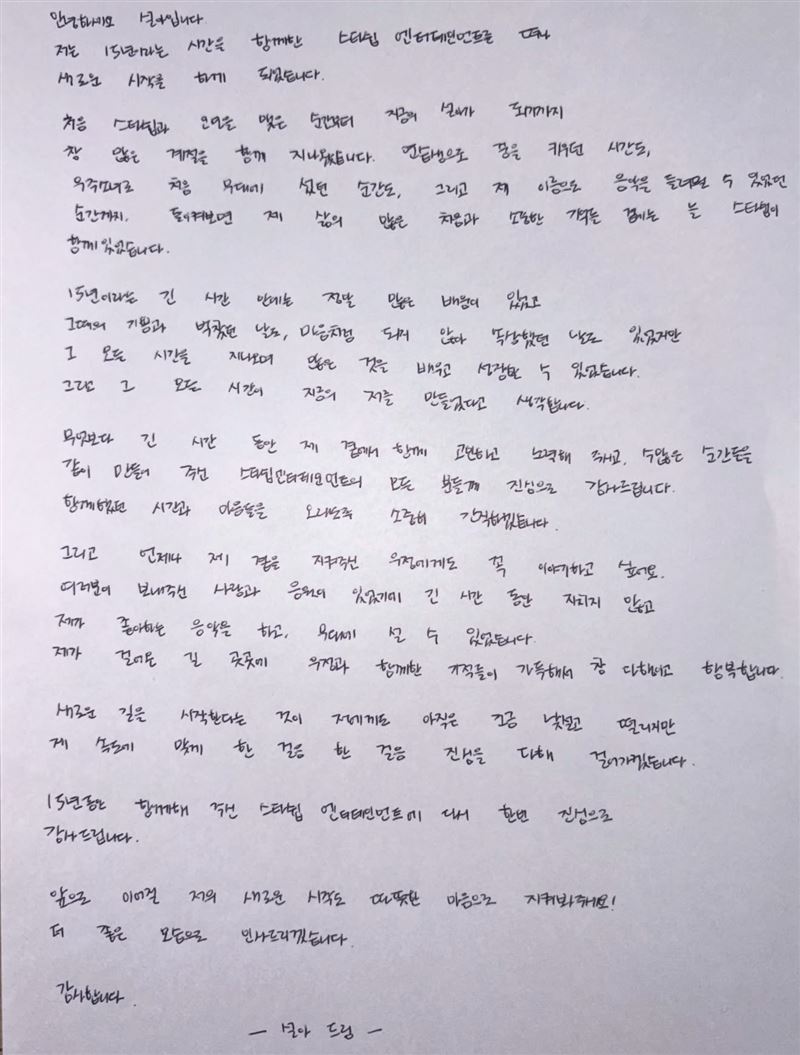 안녕하세요 설아입니다.
저는 15년이라는 시간을 함께한 스타쉽 엔터테인먼트를 떠나
새로운 시작을 하게 되었습니다.
처음 스타쉽과 인연을 맺은 순간부터 지금의 설아가 되기까지
참 많은 계절을 함께 지나왔습니다. 연습생으로 꿈을 키우던 시간도,
우주소녀로 처음 무대에 섰던 순간도, 그리고 제 이름으로 음악을 들려드릴 수 있었던
순간까지. 돌이켜보면 제 삶의 많은 처음과 소중한 기억들 곁에는 늘 스타쉽이
함께 있었습니다.
15년이라는 긴 시간 안에는 정말 많은 배움이 있었고
그때의 기쁨과 벅찼던 날도, 마음처럼 되지 않아 속상했던 날도 있었지만
그 모든 시간을 지나오며 많은 것을 배우고 성장할 수 있었습니다.
그리고 그 모든 시간이 지금의 저를 만들었다고 생각합니다.
무엇보다 긴 시간 동안 제 곁에서 함께 고민하고 노력해 주시고, 수많은 순간들을
같이 만들어 주신 스타쉽엔터테인먼트의 모든 분들께 진심으로 감사드립니다.
함께했던 시간과 마음들을 오래도록 소중히 간직하겠습니다.
그리고 언제나 제 곁을 지켜주신 우정에게도 꼭 이야기하고 싶어요.
여러분이 보내주신 사랑과 응원이 있었기에 긴 시간 동안 지치지 않고
제가 좋아하는 음악을 하고, 무대에 설 수 있었습니다.
제가 걸어온 길 곳곳에 우정과 함께한 기억들이 가득해서 참 다행이고 행복합니다.
새로운 길을 시작한다는 것이 저에게도 아직은 조금 낯설고 떨리지만
제 속도에 맞게 한 걸음 한 걸음 진심을 다해 걸어가겠습니다.
15년동안 함께해 주신 스타쉽 엔터테인먼트에 다시 한번 진심으로
감사드립니다.
앞으로 이어질 저의 새로운 시작도 따뜻한 마음으로 지켜봐주세요!
더 좋은 모습으로 인사드리겠습니다.
감사합니다.
— 설아 드림 —